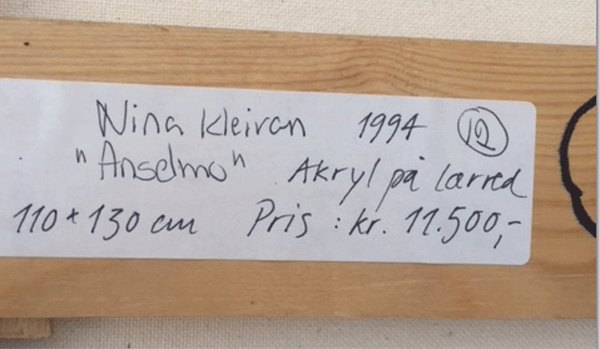 Nina Kleivan 1994 12
"Anselmo" Akryl på lærred
110 x 130 cm Pris : kr. 11.500,-